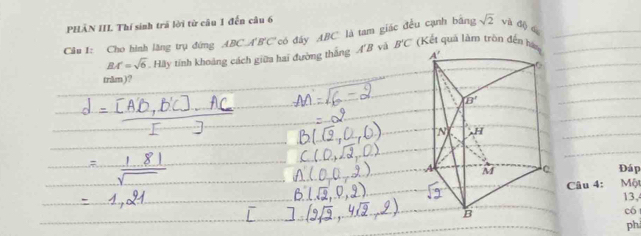 PHẦN III. Thí sinh trả lời từ câu 1 đến câu 6
Câu 1: Cho hình lăng trụ đứng ABC.A'B'C' có đáy ABC là tam giác đều cạnh bằng √2 và độ
BA' = √6. Hãy tính khoảng cách giữa hai đường thẳng A'B và B'C (Kết quả làm tròn đến hàng
trăm)?
d = [A'B, B'C] . AC
[ ]
= 1 81
√
= 1,21
AA' = √6 - 2
= 2
B(√2, 0, 0)
C(0, √2, 0)
A'(0, 0, 2)
B'(√2, 0, 2)
[ ] (2√2, 4√2, 2)
A'
B'
N
H
A
M
C
√2
B
Đáp
Câu 4: Một
13,
có
ph